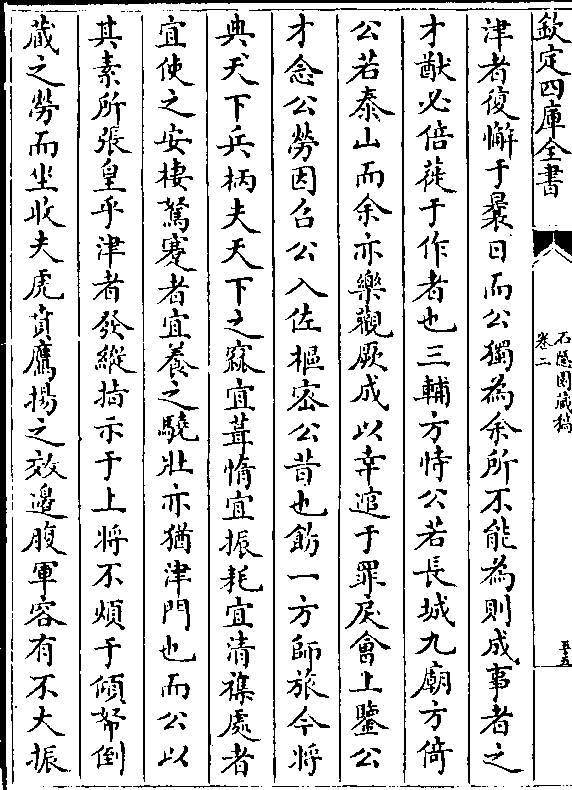 欽定四庫全書
石隱園藏稿
卷二
五十五
津者復懈于曩日而公獨為余所不能為則成事者之
才猷必倍蓰于作者也三輔方恃公若長城九廟方倚
公若泰山而余亦樂觀厥成以幸逭于罪戾會上鑒公
才念公勞因召公入佐樞密公昔也飭一方師旅今將
典天下兵柄夫天下之窳宜葺惰宜振耗宜清襍處者
宜使之安棲駑蹇者宜養之驍壯亦猶津門也而公以
其素所張皇乎津者發縱指示于上將不煩于傾帑倒
藏之勞而坐收夫虎賁鷹揚之效邊腹軍容有不大振